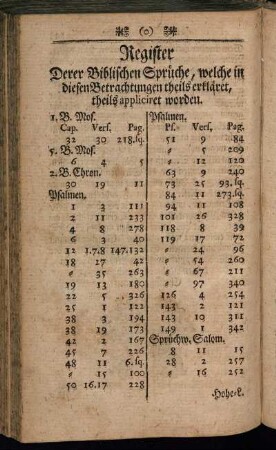 (o)
Register
Derer Biblischen Sprüche, welche in
diesen Betrachtungen theils erkläret,
theils appliciret worden.
1. B. Mos.
Cap. Vers. Pag.
32 30 218.sq.
5. B. Mos.
6 4 5
2. B. Chron.
30 19 11
Psalmen.
1 3 111
2 11 233
4 8 278
6 3 40
12 1.7.8 147.132
18 27 42
〃 35 263
19 13 180
22 5 326
25 1 122
38 3 194
38 19 173
42 2 167
45 7 226
48 11 6.sq.
〃 15 100
50 16.17 228
Psalmen.
Ps. Vers. Pag.
51 9 84
〃 5 209
〃 12 120
63 9 240
73 25 93.sq.
84 11 273.sq.
94 11 108
101 26 328
118 8 39
119 17 72
〃 24 96
〃 54 260
〃 67 211
〃 97 340
126 4 254
143 2 201
143 10 311
149 1 342
Sprüchw. Salom.
8 11 15
28 2 257
〃 16 252
Hohe-L.